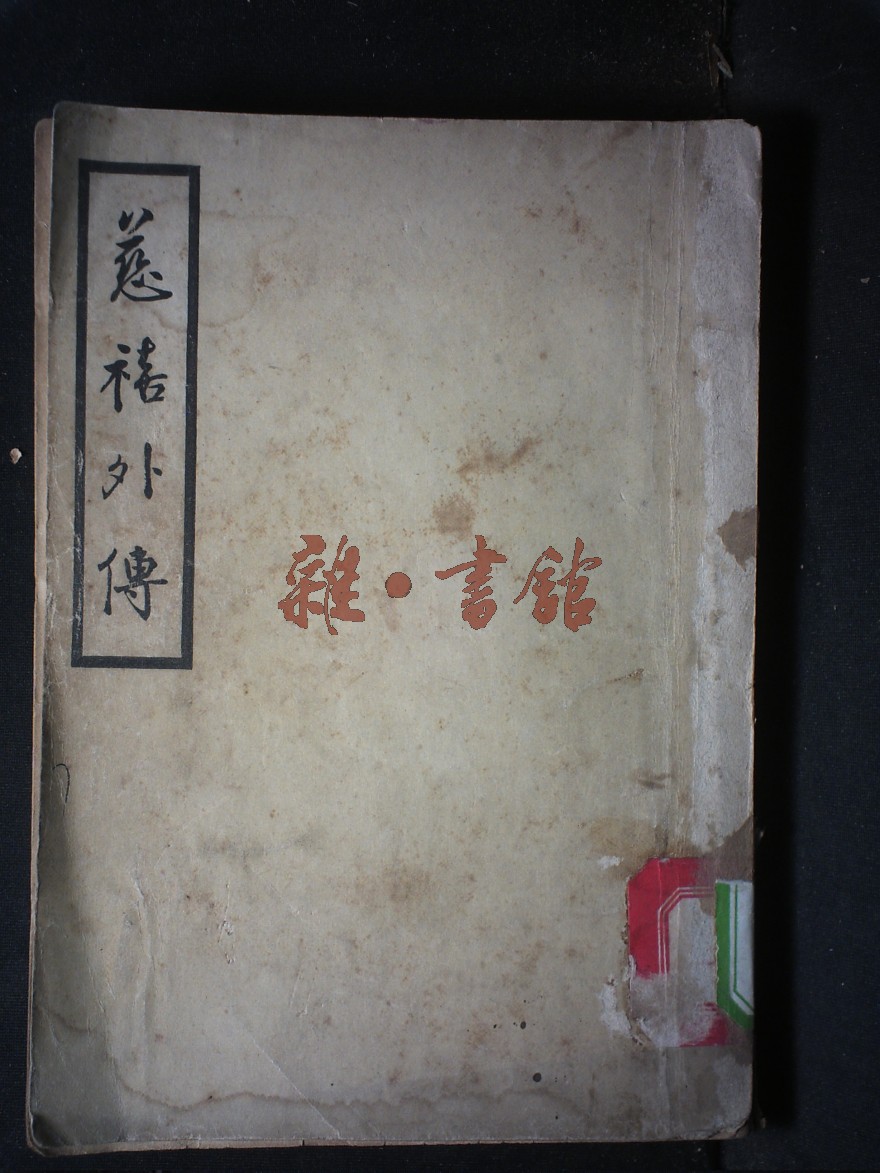 慈禧外傳
雜·書館